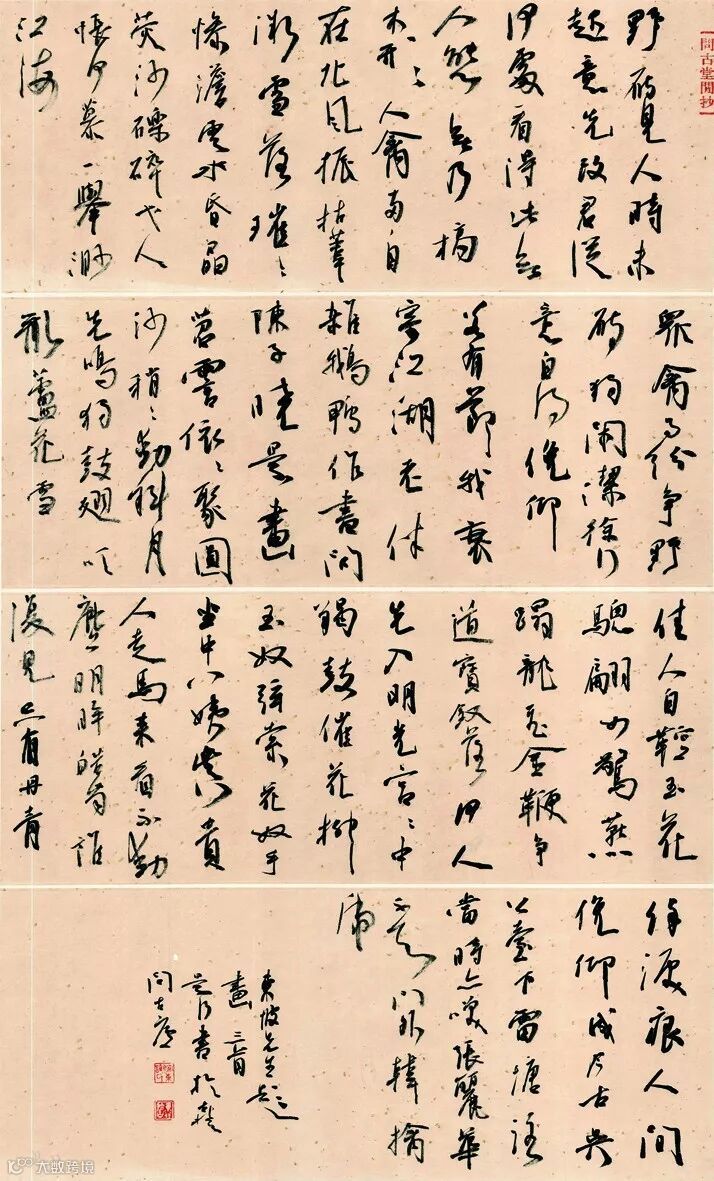 問古堂閒抄
野雁見人時未
起意先改君從
何處看得此無
人態無乃槁
木形人禽兩自
在北風振枯葦
微雪落璀〻
慘澹雲水昏晶
熒沙礫碎弋人
悵何慕一舉渺
江海
眾禽事紛爭野
雁獨閑潔徐行
意自得俯仰
若有節我衰
寄江湖老伴
雜鵝鴨作書問
陳子曉景畫
苕霅依〻聚圓
沙稍〻動斜月
先鳴獨鼓翅吹
亂蘆花雪
佳人自鞚玉花
驄翩如驚燕
蹋龍飛金鞭爭
道寶釵落何人
先入明光宮〻中
羯鼓催花柳
玉奴弦索花奴手
坐中八姨真貴
人走馬來看不動
塵明眸皓齒誰
復見只有丹青
餘淚痕人間
俯仰成今古吳
公臺下雷塘路
當時亦笑張麗華
不知門外韓擒
虎
東坡先生題
畫三首
書於
問古廬
大数跨境